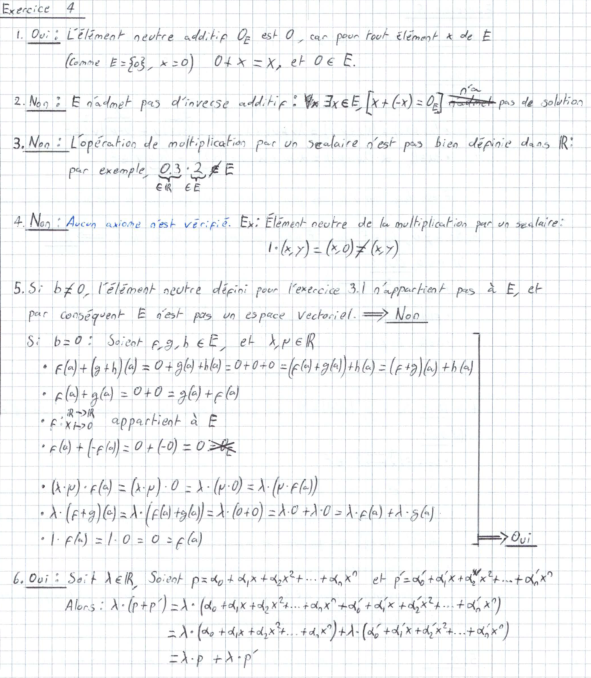 Exercice 4
1. Oui : L'élément neutre additif 0_E est 0, car pour tout élément x de E
(comme E={0}, x=0) 0+x = x, et 0 ∈ E.
2. Non : E n'admet pas d'inverse additif : ∃x ∈ E, [x + (-x) = 0_E] n'a pas de solution
3. Non : L'opération de multiplication par un scalaire n'est pas bien définie dans ℝ:
par exemple, 0,3 · 2 ∉ E
∈ℝ ∈E
4. Non : Aucun axiome n'est vérifié. Ex: Élément neutre de la multiplication par un scalaire:
1·(x,y) = (x,0) ≠ (x,y)
5. Si b≠0, l'élément neutre défini pour l'exercice 3.1 n'appartient pas à E, et
par conséquent E n'est pas un espace vectoriel. ⟹ Non
Si b=0 : Soient f,g,h ∈ E, et λ,μ ∈ ℝ
• f(a)+(g+h)(a) = 0+g(a)+h(a) = 0+0+0 = (f(a)+g(a))+h(a) = (f+g)(a)+h(a)
• f(a)+g(a) = 0+0 = g(a)+f(a)
• f: ℝ→ℝ x↦0 appartient à E
• f(a) + (-f(a)) = 0 + (-0) = 0
• (λ·μ)·f(a) = (λ·μ)·0 = λ·(μ·0) = λ·(μ·f(a))
• λ·(f+g)(a) = λ·(f(a)+g(a)) = λ·(0+0) = λ·0+λ·0 = λ·f(a)+λ·g(a)
• 1·f(a) = 1·0 = 0 = f(a) ⟹ Oui
6. Oui : Soit λ∈ℝ, Soient p = α₀+α₁x+α₂x²+...+αₙxⁿ et p' = α₀'+α₁'x+α₂'x²+...+αₙ'xⁿ
Alors : λ·(p+p') = λ·(α₀+α₁x+α₂x²+...+αₙxⁿ+α₀'+α₁'x+α₂'x²+...+αₙ'xⁿ)
= λ·(α₀+α₁x+α₂x²+...+αₙxⁿ)+λ·(α₀'+α₁'x+α₂'x²+...+αₙ'xⁿ)
= λ·p + λ·p'